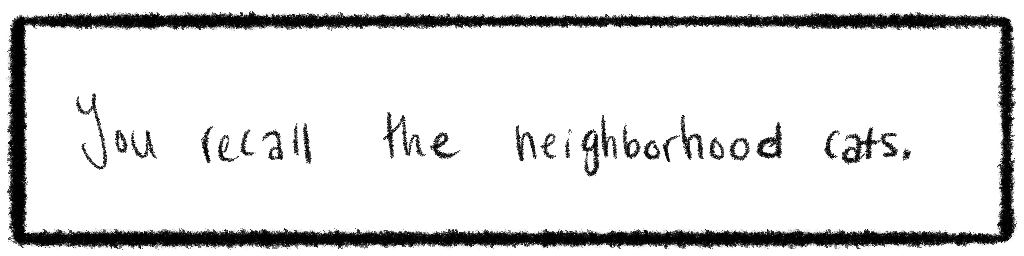 You recall the neighborhood cats.